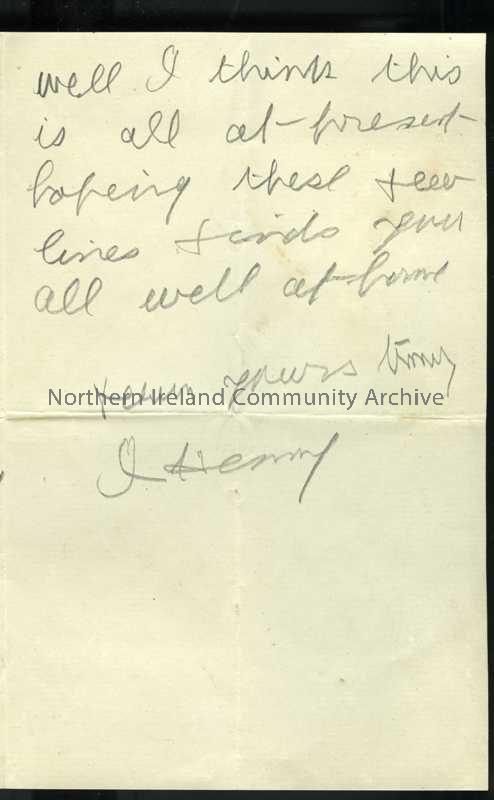 well I think this
is all at present
hoping these few
lines finds you
all well at home
from yours truly
Northern Ireland Community Archive
J Henry